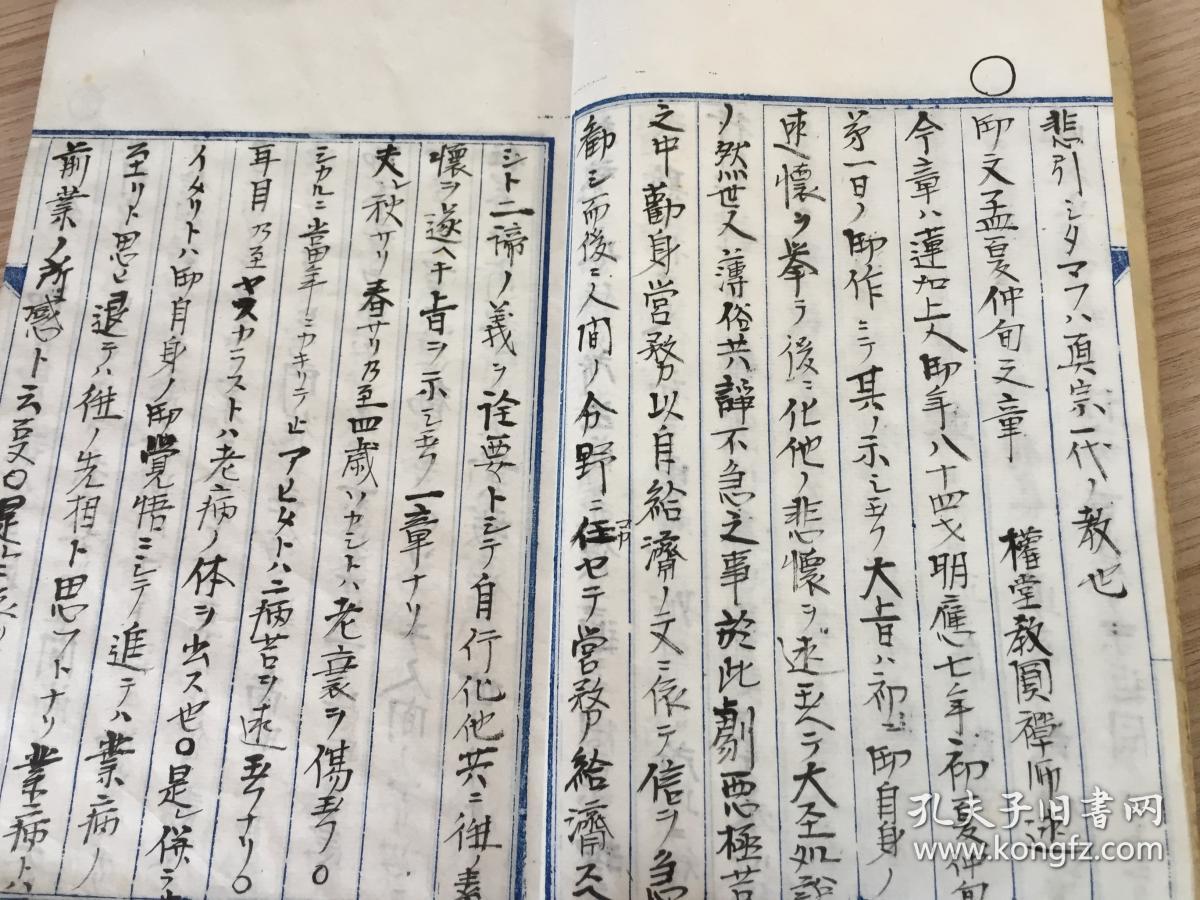 悲引シタマフハ真宗一代ノ教也
御文孟夏仲旬之章 權堂教圓禪師述
今章ハ蓮如上人御年八十四才明應七年初夏仲旬
第一日ノ御作ニテ其ノ示シ玉フ大上旨ハ初ニ御自身ノ
述懷ヲ挙ラ後ニ化他ノ悲懷ヲ述玉ヘテ大圣如說
ノ然世人薄俗共諍不急之事於此劇悪極苦
之中勤身営務以自給濟ノ文ニ依テ信ヲ急
勧シ而後ニ人間ノ分野ニ任セテ営務給濟スヘ
シト二諦ノ義ヲ詮要トシテ自行化他共ニ往ノ素
懷ヲ遂ヘキ上旨ヲ示シ玉フ一章ナリ
夫レ秋サリ春サリ乃至四歳ソカシトハ老衰ヲ傷玉フ○
シカルニ當年ニカキリテ止アヒタトハ二病苦ヲ述玉フナリ○
耳目乃至ヤスカラストハ老病ノ体ヲ出ス也○是レ併テ
イタリトハ御自身ノ御覺悟ニシテ進テハ業病ノ
至リト思ヒ退テハ往ノ先相ト思フトナリ業病トハ
前業ノ所感ト云夏○是
孔夫子旧书网
kongfz.com